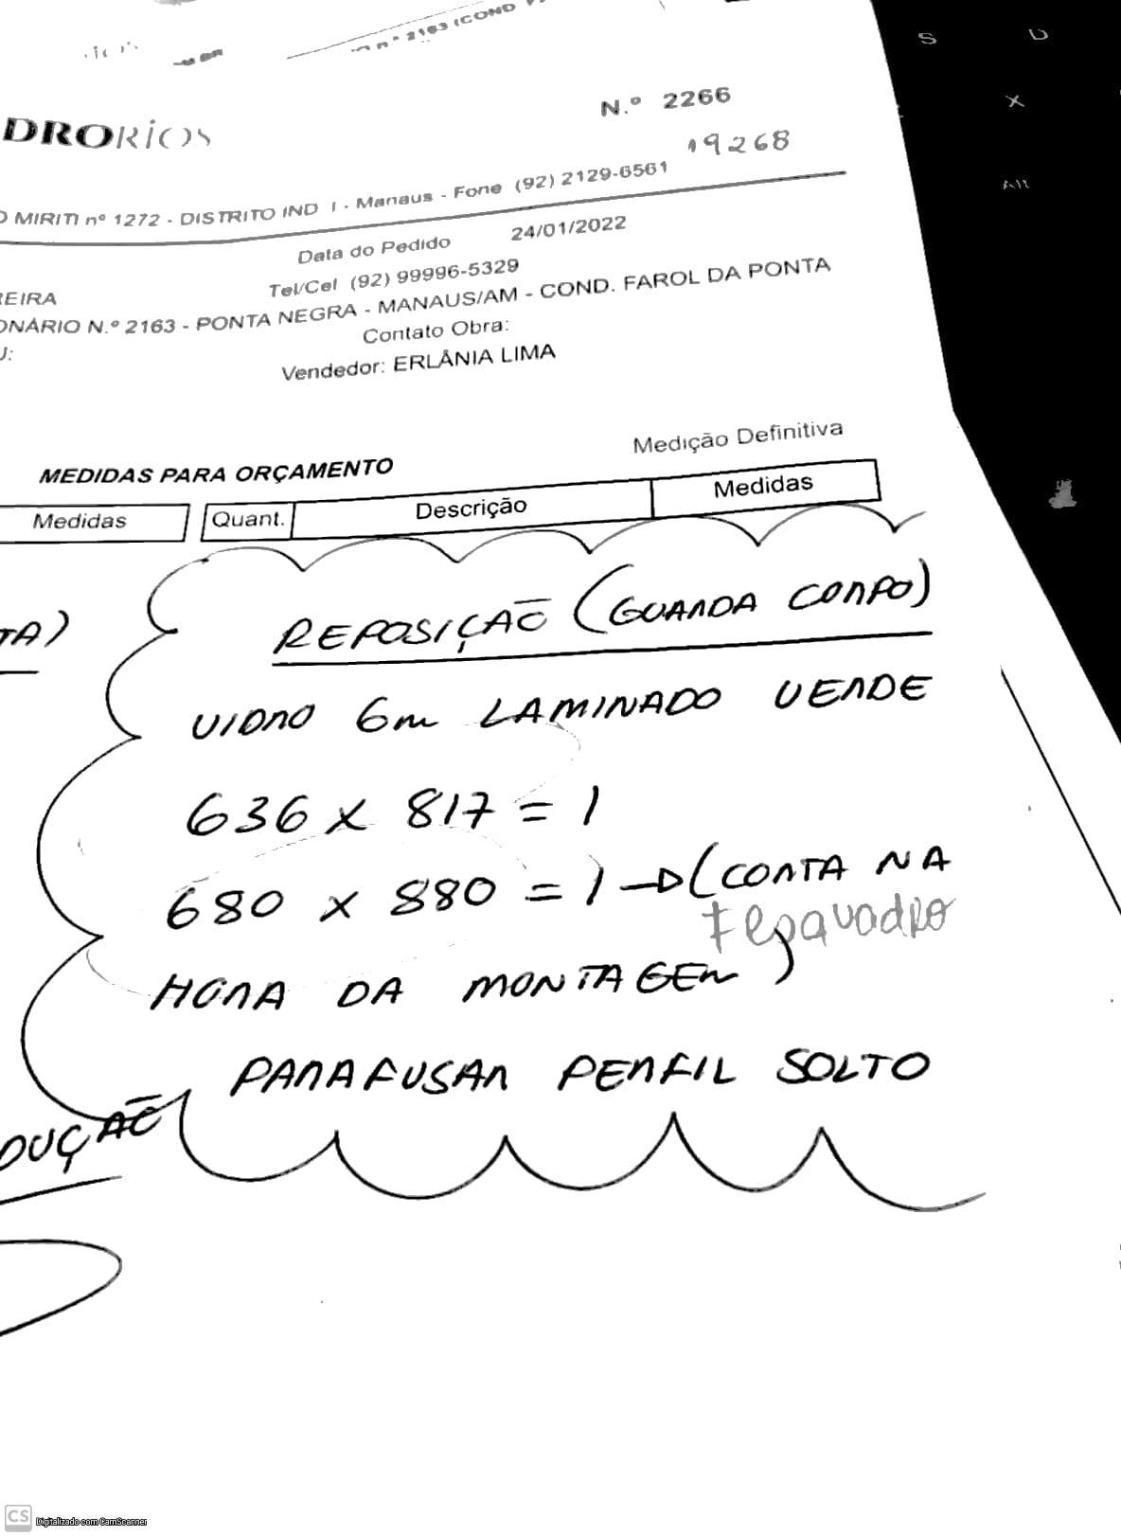 nº 2163 (COND
N.º 2266
DRORIOS
19268
O MIRITI nº 1272 - DISTRITO IND I - Manaus - Fone (92) 2129-6561
Data do Pedido 24/01/2022
Tel/Cel (92) 99996-5329
EIRA
ONÁRIO N.º 2163 - PONTA NEGRA - MANAUS/AM - COND. FAROL DA PONTA
Contato Obra:
U:
Vendedor: ERLÂNIA LIMA
Medição Definitiva
MEDIDAS PARA ORÇAMENTO
Medidas Quant. Descrição Medidas
TA)
REPOSIÇÃO (GUARDA CORPO)
VIDRO 6m LAMINADO VERDE
636 x 817 = 1
680 x 880 = 1 → (CORTA NA
HORA DA MONTAGEM)
PARAFUSAR PERFIL SOLTO
DUÇÃO
S U
X
Alt
CS Digitalizado com CamScanner